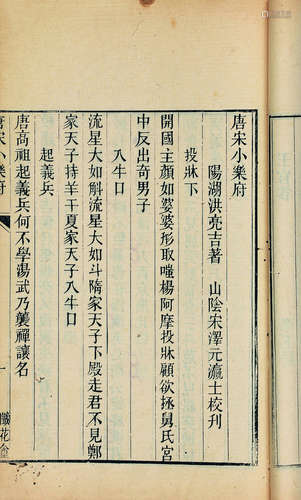 唐宋小樂府
陽湖洪亮吉著 山陰宋澤元瀛士校刊
投牀下
開國主顏如婆婆形取嗤楊阿摩投牀顧欲拯舅氏宮
中反出奇男子
入牛口
流星大如斛流星大如斗隋家天子下殿走君不見鄭
家天子持羊干夏家天子入牛口
起義兵
唐高祖起義兵何不學湯武乃襲禪讓名
唐宋小樂府
一
懺花盦